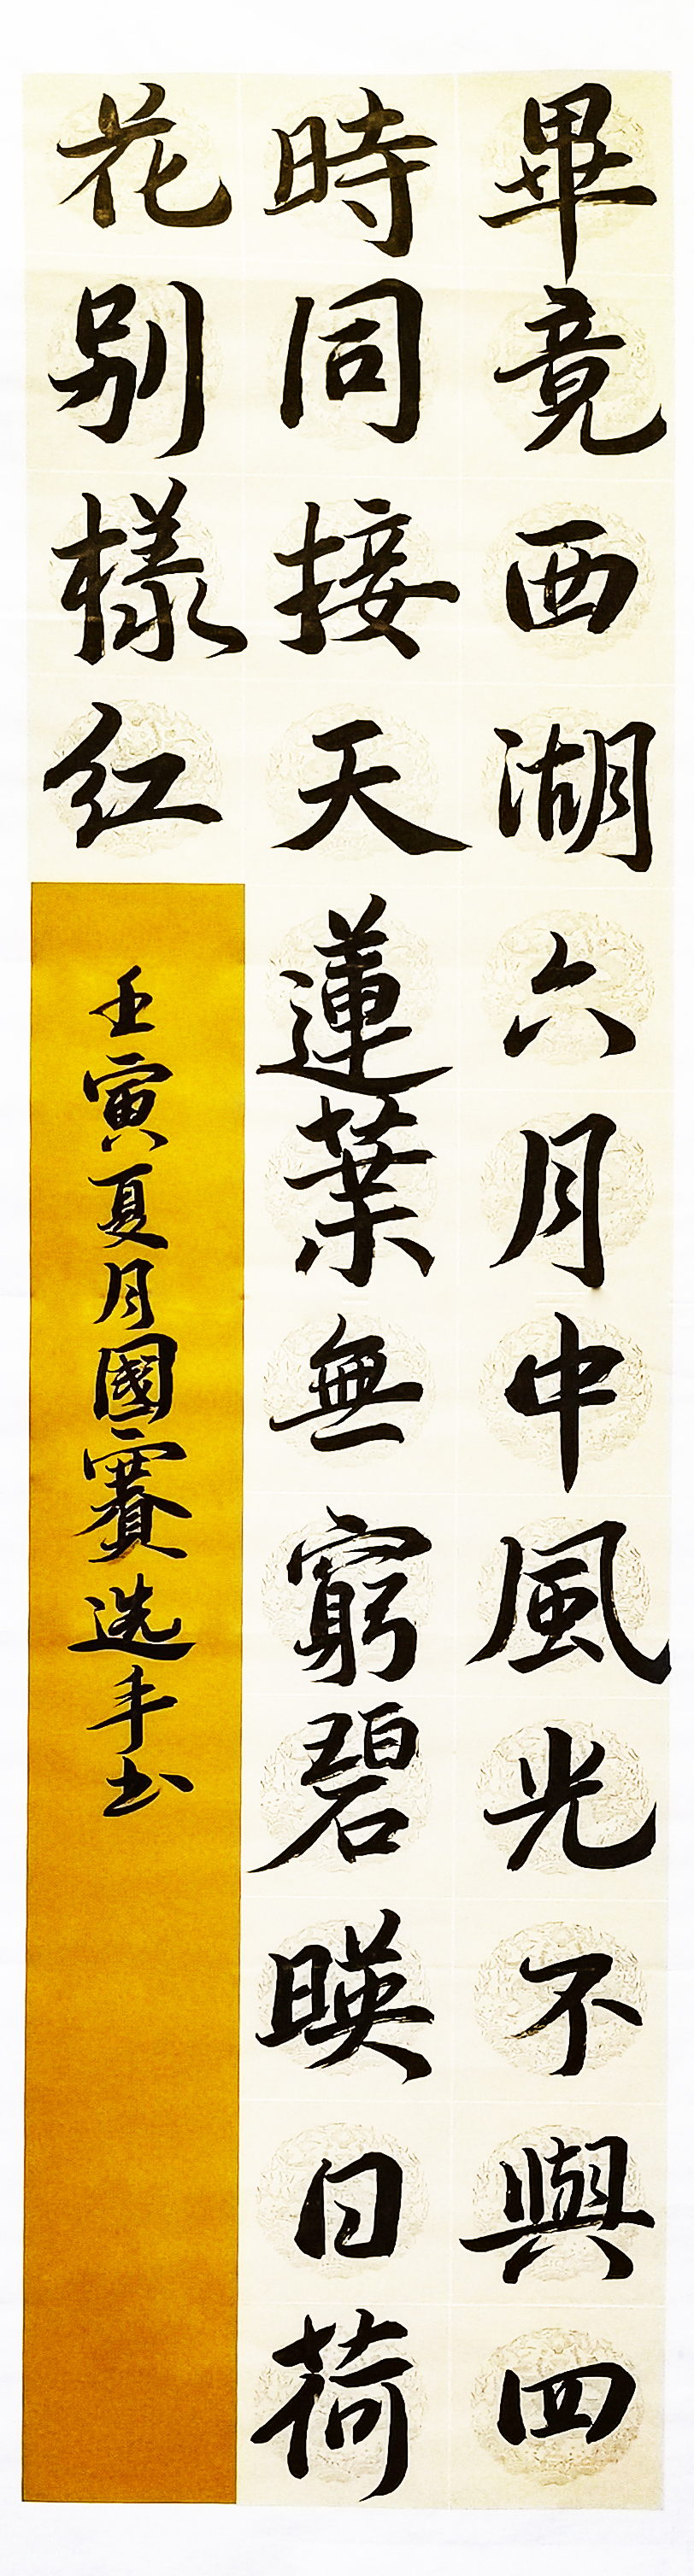 畢竟西湖六月中風光不與四
時同接天蓮葉無窮碧暎日荷
花别樣红
壬寅夏月國賽选手书